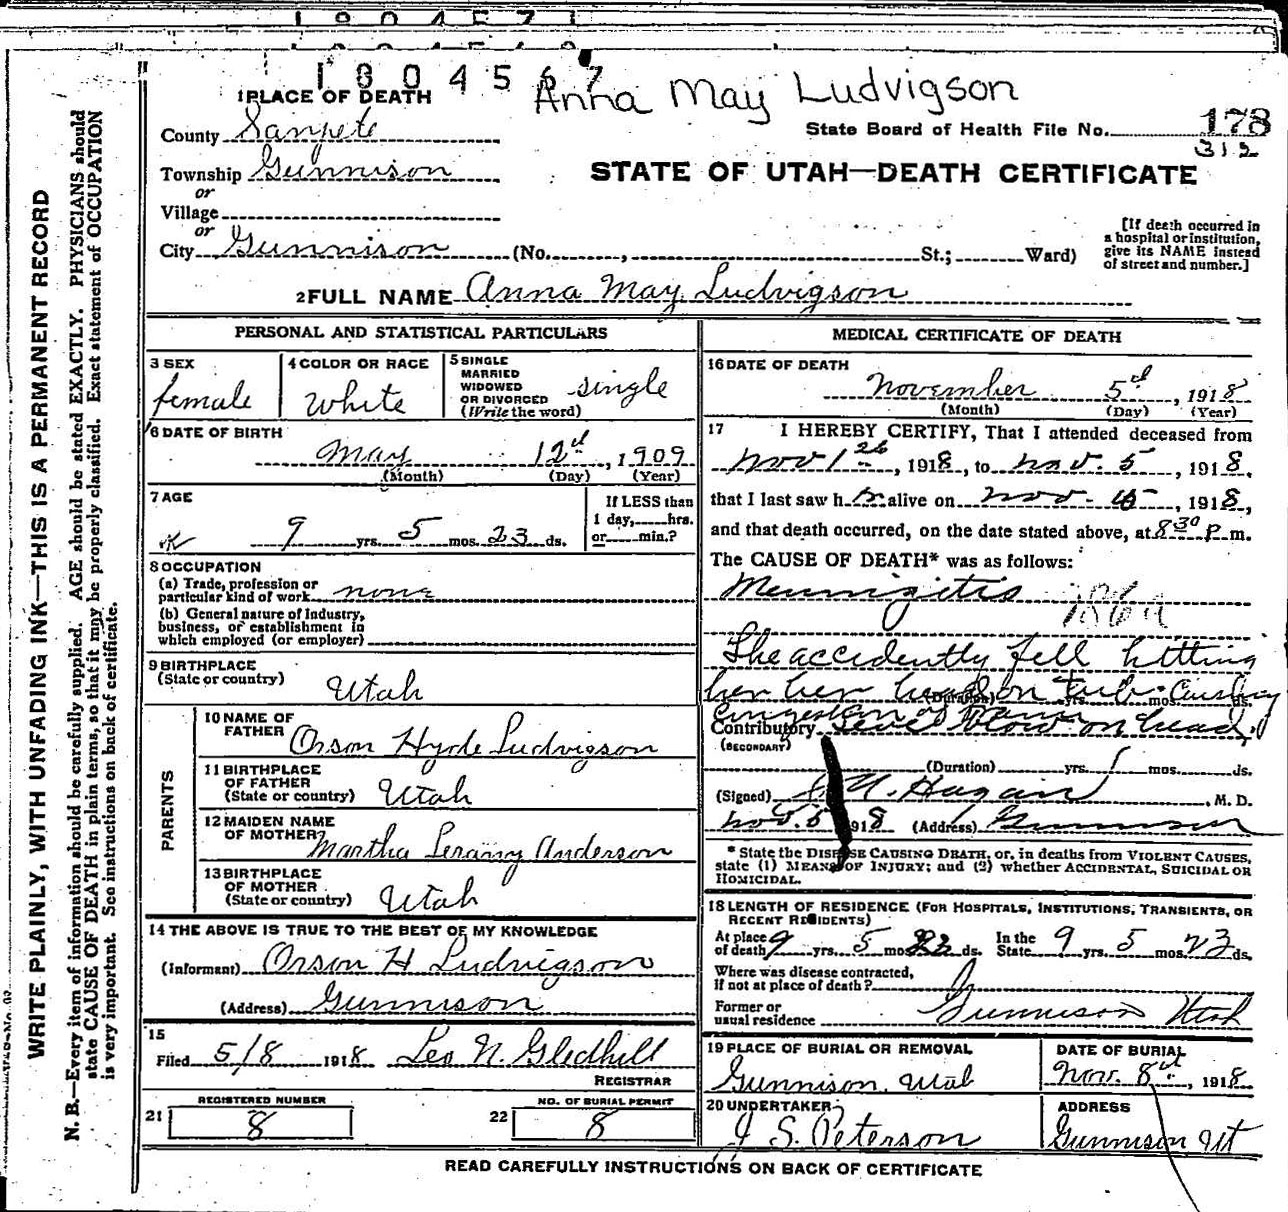 1904571
1804567
Anna May Ludvigson
1 PLACE OF DEATH
County Sanpete
State Board of Health File No. 178
312
Township Gunnison
STATE OF UTAH—DEATH CERTIFICATE
or
Village
or
City Gunnison (No. , St.; Ward)
[If death occurred in
a hospital or institution,
give its NAME instead
of street and number.]
2 FULL NAME Anna May Ludvigson
PERSONAL AND STATISTICAL PARTICULARS
3 SEX
female
4 COLOR OR RACE
White
5 SINGLE
MARRIED
WIDOWED
OR DIVORCED
(Write the word)
single
6 DATE OF BIRTH
May 12d, 1909
(Month) (Day) (Year)
7 AGE
9 yrs. 5 mos. 23 ds.
If LESS than
1 day, hrs.
or min.?
8 OCCUPATION
(a) Trade, profession or
particular kind of work none
(b) General nature of Industry,
business, or establishment in
which employed (or employer)
9 BIRTHPLACE
(State or country)
Utah
PARENTS
10 NAME OF
FATHER
Orson Hyde Ludvigson
11 BIRTHPLACE
OF FATHER
(State or country)
Utah
12 MAIDEN NAME
OF MOTHER
Martha Anderson
13 BIRTHPLACE
OF MOTHER
(State or country)
Utah
14 THE ABOVE IS TRUE TO THE BEST OF MY KNOWLEDGE
(Informant) Orson H Ludvigson
(Address) Gunnison
15
Filed 5/8 1918 Leo N. Gledhill
REGISTRAR
21
REGISTERED NUMBER
8
22
NO. OF BURIAL PERMIT
8
MEDICAL CERTIFICATE OF DEATH
16 DATE OF DEATH
November 5d, 1918
(Month) (Day) (Year)
17 I HEREBY CERTIFY, That I attended deceased from
Nov 1, 1918, to Nov. 5, 1918,
that I last saw h er alive on Nov. 5, 1918,
and that death occurred, on the date stated above, at 8 30 P. m.
The CAUSE OF DEATH* was as follows:
Meningitis
186a
She accidently fell hitting
her her head on tub causing
(Duration) yrs. mos. ds.
congestion of brain
Contributory blow on head
(SECONDARY)
(Duration) yrs. mos. ds.
(Signed) Hagan, M. D.
Nov. 5 1918 (Address) Gunnison
* State the DISEASE CAUSING DEATH, or, in deaths from VIOLENT CAUSES,
state (1) MEANS OF INJURY; and (2) whether ACCIDENTAL, SUICIDAL OR
HOMICIDAL.
18 LENGTH OF RESIDENCE (FOR HOSPITALS, INSTITUTIONS, TRANSIENTS, OR
RECENT RESIDENTS)
At place
of death 9 yrs. 5 mos. 23 ds.
In the
State 9 yrs. 5 mos. 23 ds.
Where was disease contracted,
if not at place of death?
Former or
usual residence Gunnison Utah
19 PLACE OF BURIAL OR REMOVAL
Gunnison, Utah
DATE OF BURIAL
Nov. 8d, 1918
20 UNDERTAKER
J S. Peterson
ADDRESS
Gunnison Ut
READ CAREFULLY INSTRUCTIONS ON BACK OF CERTIFICATE
WRITE PLAINLY, WITH UNFADING INK—THIS IS A PERMANENT RECORD
N. B.—Every item of information should be carefully supplied. AGE should be stated EXACTLY. PHYSICIANS should
state CAUSE OF DEATH in plain terms, so that it may be properly classified. Exact statement of OCCUPATION
is very important. See instructions on back of certificate.